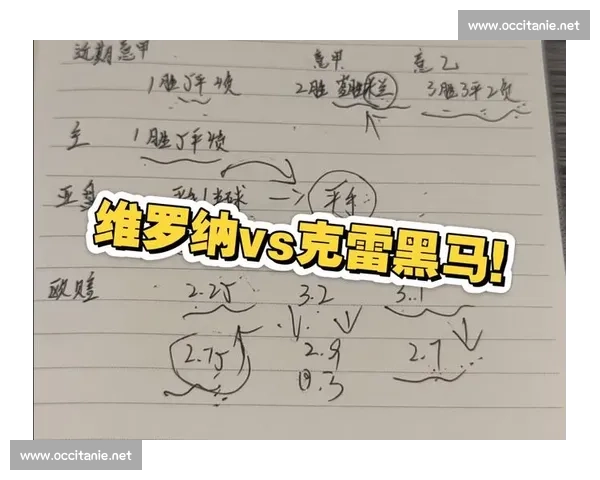 www.occitanie.net
近期意甲 意甲 意乙
1胜5平 负 2胜 3胜3平2负
主 1胜5平 负
亚盘 平手/半球 → 平手
维罗纳vs克雷黑马!
欧赔 2.25 3.2 3.1
2.75 2.9 2.7
www.occitanie.net